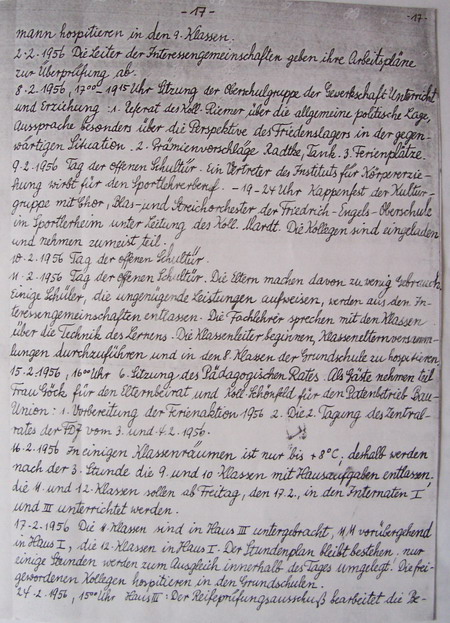 - 17 -
- 17 -
mann hospitieren in den 9. Klassen.
2.2.1956 Die Leiter der Interessengemeinschaften geben ihre Arbeitspläne
zur Überprüfung ab.
8.2.1956, 17⁰⁰ - 19¹⁵ Uhr Sitzung der Oberschulgruppe der Gewerkschaft Unterricht
und Erziehung: 1. Referat des Koll. Riemer über die allgemeine politische Lage,
Aussprache besonders über die Perspektive des Friedenslagers in der gegen-
wärtigen Situation. 2. Prämienvorschläge Radtke, Tank. 3. Ferienplätze.
9.2.1956 Tag der offenen Schultür. Ein Vertreter des Instituts für Körpererzie-
hung wirbt für den Sportlehrerberuf. - 19-24 Uhr Kappenfest der Kultur-
gruppe mit Chor, Blas- und Streichorchester der Friedrich-Engels-Oberschule
im Sportlerheim unter Leitung des Koll. Mardt. Die Kollegen sind eingeladen
und nehmen zumeist teil.
10.2.1956 Tag der offenen Schultür.
11.2.1956 Tag der offenen Schultür. Die Eltern machen davon zu wenig Gebrauch.
Einige Schüler, die ungenügende Leistungen aufweisen, werden aus den In-
teressengemeinschaften entlassen. Die Fachlehrer sprechen mit den Klassen
über die Technik des Lernens. Die Klassenleiter beginnen, Klassenelternversamm-
lungen durchzuführen und in den 8. Klassen der Grundschule zu hospitieren.
15.2.1956, 16⁰⁰ Uhr 6. Sitzung des Pädagogischen Rates. Als Gäste nehmen teil
Frau Göck für den Elternbeirat und Koll. Schönfeld für den Patenbetrieb Bau-
Union: 1. Vorbereitung der Ferienaktion 1956 2. Die 2. Tagung des Zentral-
rates der FDJ vom 3. und 4.2.1956.
16.2.1956 In einigen Klassenräumen ist nur bis +8°C, deshalb werden
nach der 3. Stunde die 9. und 10. Klassen mit Hausaufgaben entlassen,
die 11. und 12. Klassen sollen ab Freitag, den 17.2., in den Internaten I
und III unterrichtet werden.
17.2.1956 Die 11. Klassen sind in Haus III untergebracht, 11 M vorübergehend
in Haus I, die 12. Klassen in Haus I. Der Stundenplan bleibt bestehen, nur
einige Stunden werden zum Ausgleich innerhalb des Tages umgelegt. Die frei-
gewordenen Kollegen hospitieren in den Grundschulen.
24.2.1956, 15⁰⁰ Uhr Haus III: Der Reifeprüfungsausschuß bearbeitet die Be-